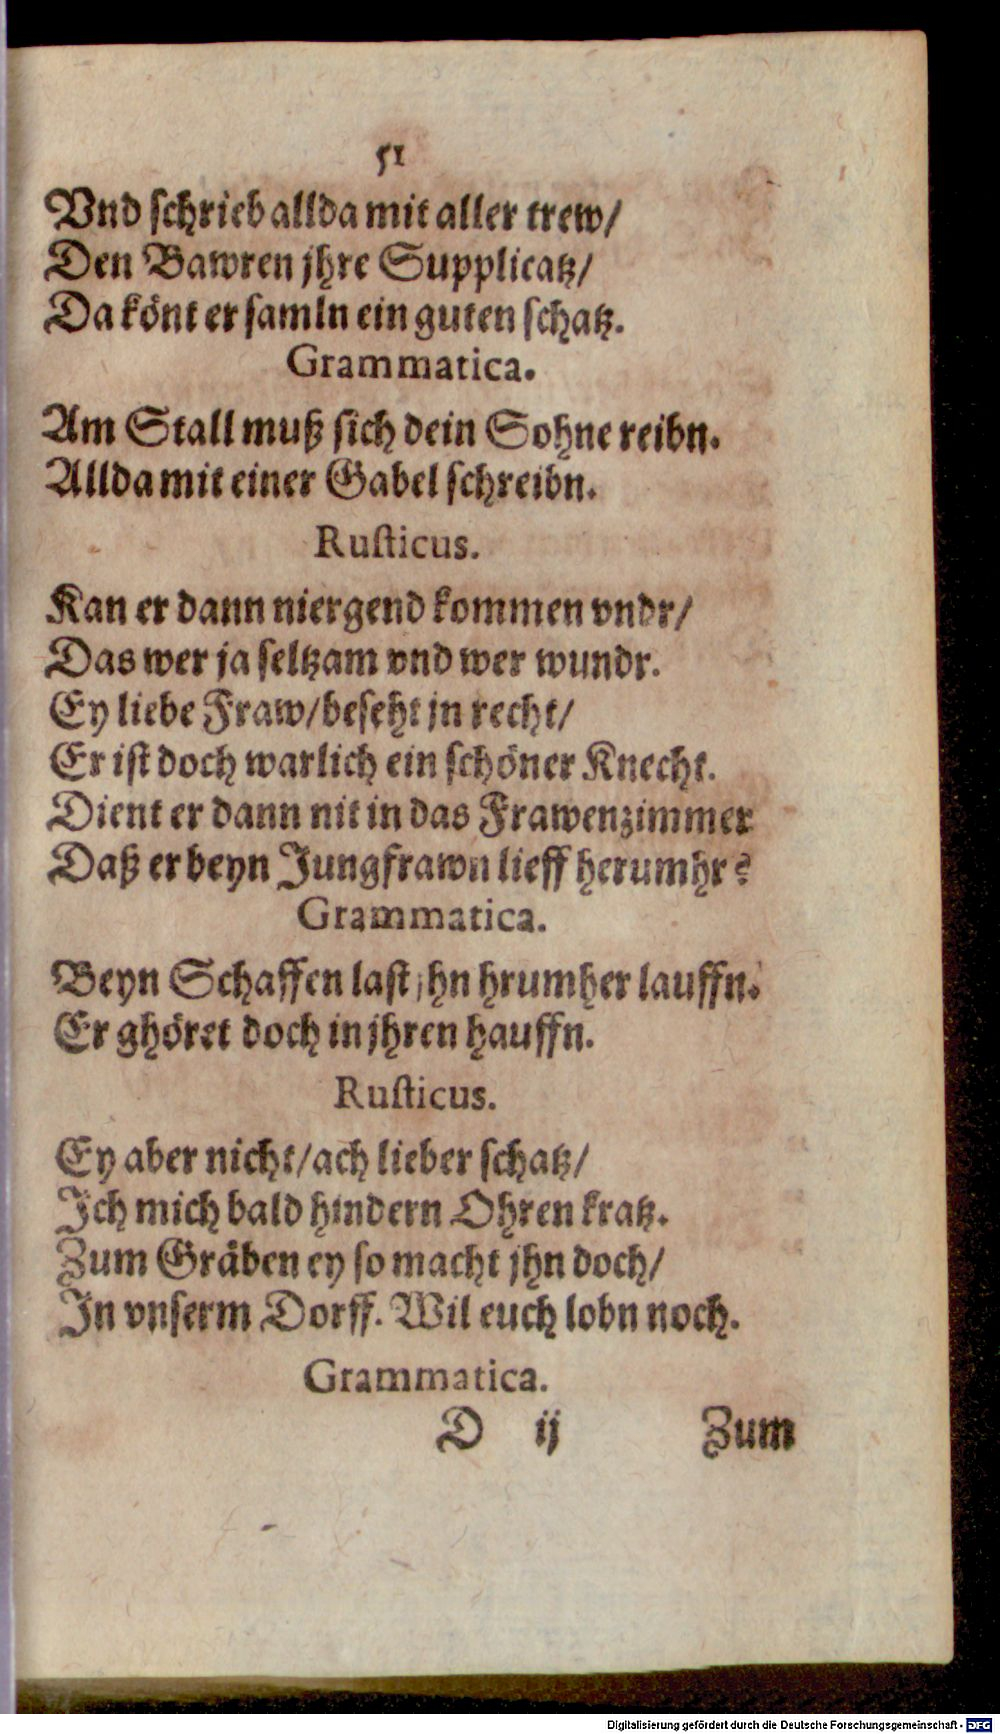 51
Vnd schrieb allda mit aller trew/
Den Bawren jhre Supplicatz/
Da könt er samln ein guten schatz.
Grammatica.
Am Stall muß sich dein Sohne reibn.
Allda mit einer Gabel schreibn.
Rusticus.
Kan er dann niergend kommen vndr/
Das wer ja seltzam vnd wer wundr.
Ey liebe Fraw/beseht jn recht/
Er ist doch warlich ein schöner Knecht.
Dient er dann nit in das Frawenzimmer
Daß er beyn Jungfrawn lieff herumhr?
Grammatica.
Beyn Schaffen last jhn hrumher lauffn.
Er ghöret doch in jhren hauffn.
Rusticus.
Ey aber nicht/ach lieber schatz/
Ich mich bald hindern Ohren kratz.
Zum Gräben ey so macht jhn doch/
In vnserm Dorff. Wil euch lobn noch.
Grammatica.
D ij Zum
Digitalisierung gefördert durch die Deutsche Forschungsgemeinschaft - DFG